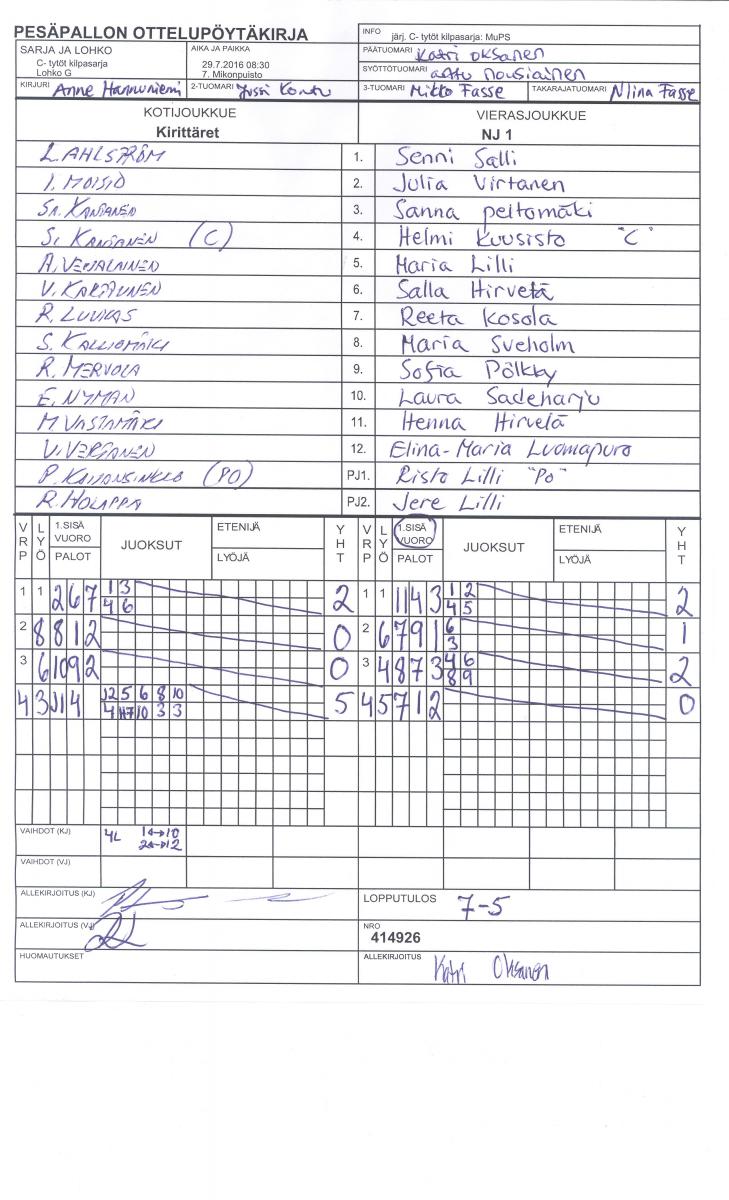 PESÄPALLON OTTELUPÖYTÄKIRJA
INFO järj. C- tytöt kilpasarja: MuPS
SARJA JA LOHKO
C- tytöt kilpasarja
Lohko G
AIKA JA PAIKKA
29.7.2016 08:30
7. Mikonpuisto
PÄÄTUOMARI Katri Oksanen
SYÖTTÖTUOMARI Arttu Nousiainen
KIRJURI Anne Hannuniemi
2-TUOMARI Jussi Kontu
3-TUOMARI Mikko Fasse
TAKARAJATUOMARI Niina Fasse
KOTIJOUKKUE
Kirittäret
VIERASJOUKKUE
NJ 1
L. AHLSTRÖM 1. Senni Salli
I. MOISIO 2. Julia Virtanen
SA. KANTANEN 3. Sanna Peltomäki
SI. KANTANEN (C) 4. Helmi Kuusisto "C"
A. VEIJALAINEN 5. Maria Lilli
V. KARJUNEN 6. Salla Hirvelä
R. LUUKAS 7. Reeta Kosola
S. KALLIOMÄKI 8. Maria Sveholm
R. MERVOLA 9. Sofia Pölkky
E. NYMAN 10. Laura Sadeharju
M. VASTAMÄKI 11. Henna Hirvelä
V. 12. Elina-Maria Luomapuro
P. (PO) PJ1. Risto Lilli "PO"
R. HOLAPPA PJ2. Jere Lilli
VRP LYÖ 1.SISÄ VUORO PALOT JUOKSUT ETENIJÄ LYÖJÄ YHT VRP LYÖ 1.SISÄ VUORO PALOT JUOKSUT ETENIJÄ LYÖJÄ YHT
1 1 2 6 7 1 3 2 1 1 11 4 3 1 2 2
4 6 4 5
2 8 8 1 2 0 2 6 7 9 1 6 1
3
3 6 10 9 2 0 3 4 8 7 3 4 6 2
8 9
4 3 J 1 4 12 5 6 8 10 5 4 5 7 1 2 0
4 10 3 3
VAIHDOT (KJ) 4L 1↔10
2↔12
VAIHDOT (VJ)
ALLEKIRJOITUS (KJ)
LOPPUTULOS 7-5
ALLEKIRJOITUS (VJ)
NRO
414926
HUOMAUTUKSET
ALLEKIRJOITUS Katri Oksanen